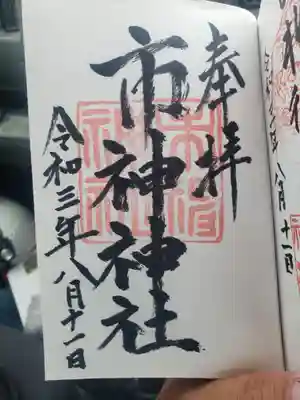 奉拝
市神神社
令和三年八月十一日
八月十一日